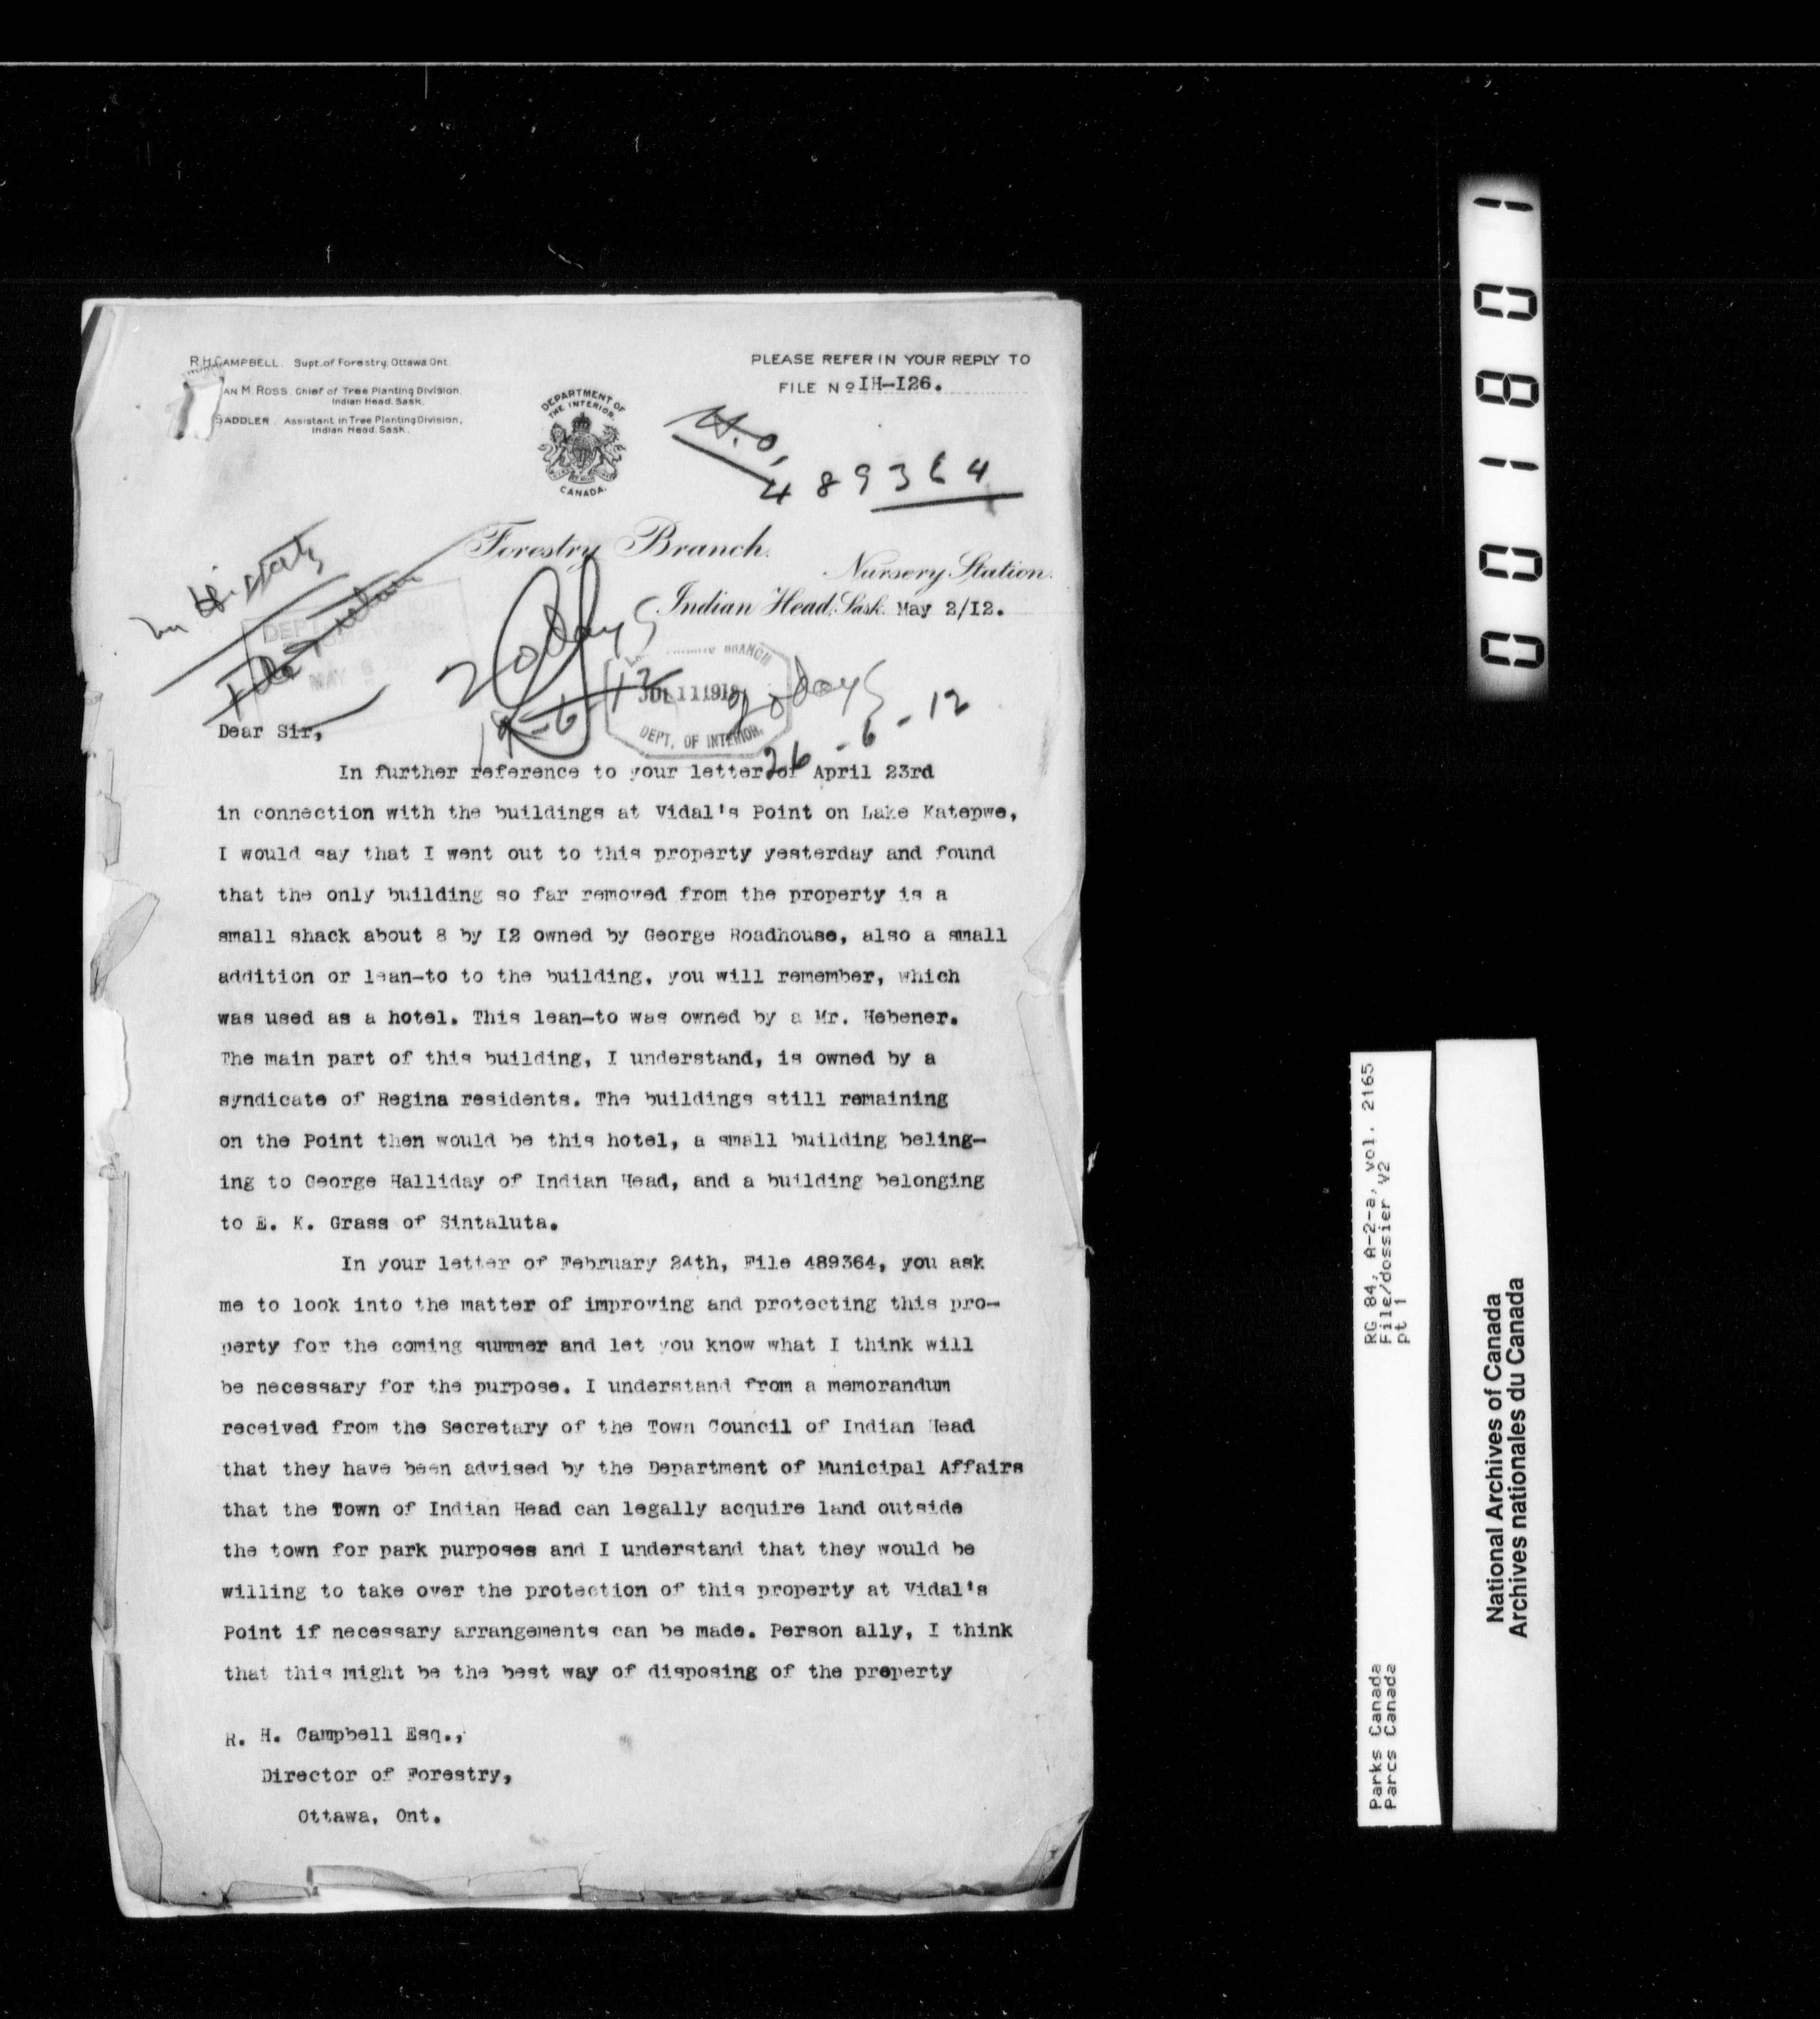 R.H. CAMPBELL. Supt. of Forestry, Ottawa Ont.
AN M. ROSS. Chief of Tree Planting Division,
Indian Head, Sask.
SADDLER. Assistant in Tree Planting Division,
Indian Head, Sask.
DEPARTMENT OF
THE INTERIOR.
CANADA.
PLEASE REFER IN YOUR REPLY TO
FILE No IH-I26.
H.O.
489364
Forestry Branch.
Nursery Station.
Indian Head, Sask. May 2/I2.
DEPT
MAY 6
20 days
BRANCH
JUL 11 1912
DEPT. OF INTERIOR.
20 days
26-6-12
Dear Sir,
In further reference to your letter of April 23rd
in connection with the buildings at Vidal's Point on Lake Katepwe,
I would say that I went out to this property yesterday and found
that the only building so far removed from the property is a
small shack about 8 by I2 owned by George Roadhouse, also a small
addition or lean-to to the building, you will remember, which
was used as a hotel. This lean-to was owned by a Mr. Hebener.
The main part of this building, I understand, is owned by a
syndicate of Regina residents. The buildings still remaining
on the Point then would be this hotel, a small building beling-
ing to George Halliday of Indian Head, and a building belonging
to E. K. Grass of Sintaluta.
In your letter of February 24th, File 489364, you ask
me to look into the matter of improving and protecting this pro-
perty for the coming summer and let you know what I think will
be necessary for the purpose. I understand from a memorandum
received from the Secretary of the Town Council of Indian Head
that they have been advised by the Department of Municipal Affairs
that the Town of Indian Head can legally acquire land outside
the town for park purposes and I understand that they would be
willing to take over the protection of this property at Vidal's
Point if necessary arrangements can be made. Person ally, I think
that this might be the best way of disposing of the preperty
R. H. Campbell Esq.,
Director of Forestry,
Ottawa, Ont.
001801
RG 84, A-2-a, vol. 2165
File/dossier V2
pt 1
Parks Canada
Parcs Canada
National Archives of Canada
Archives nationales du Canada